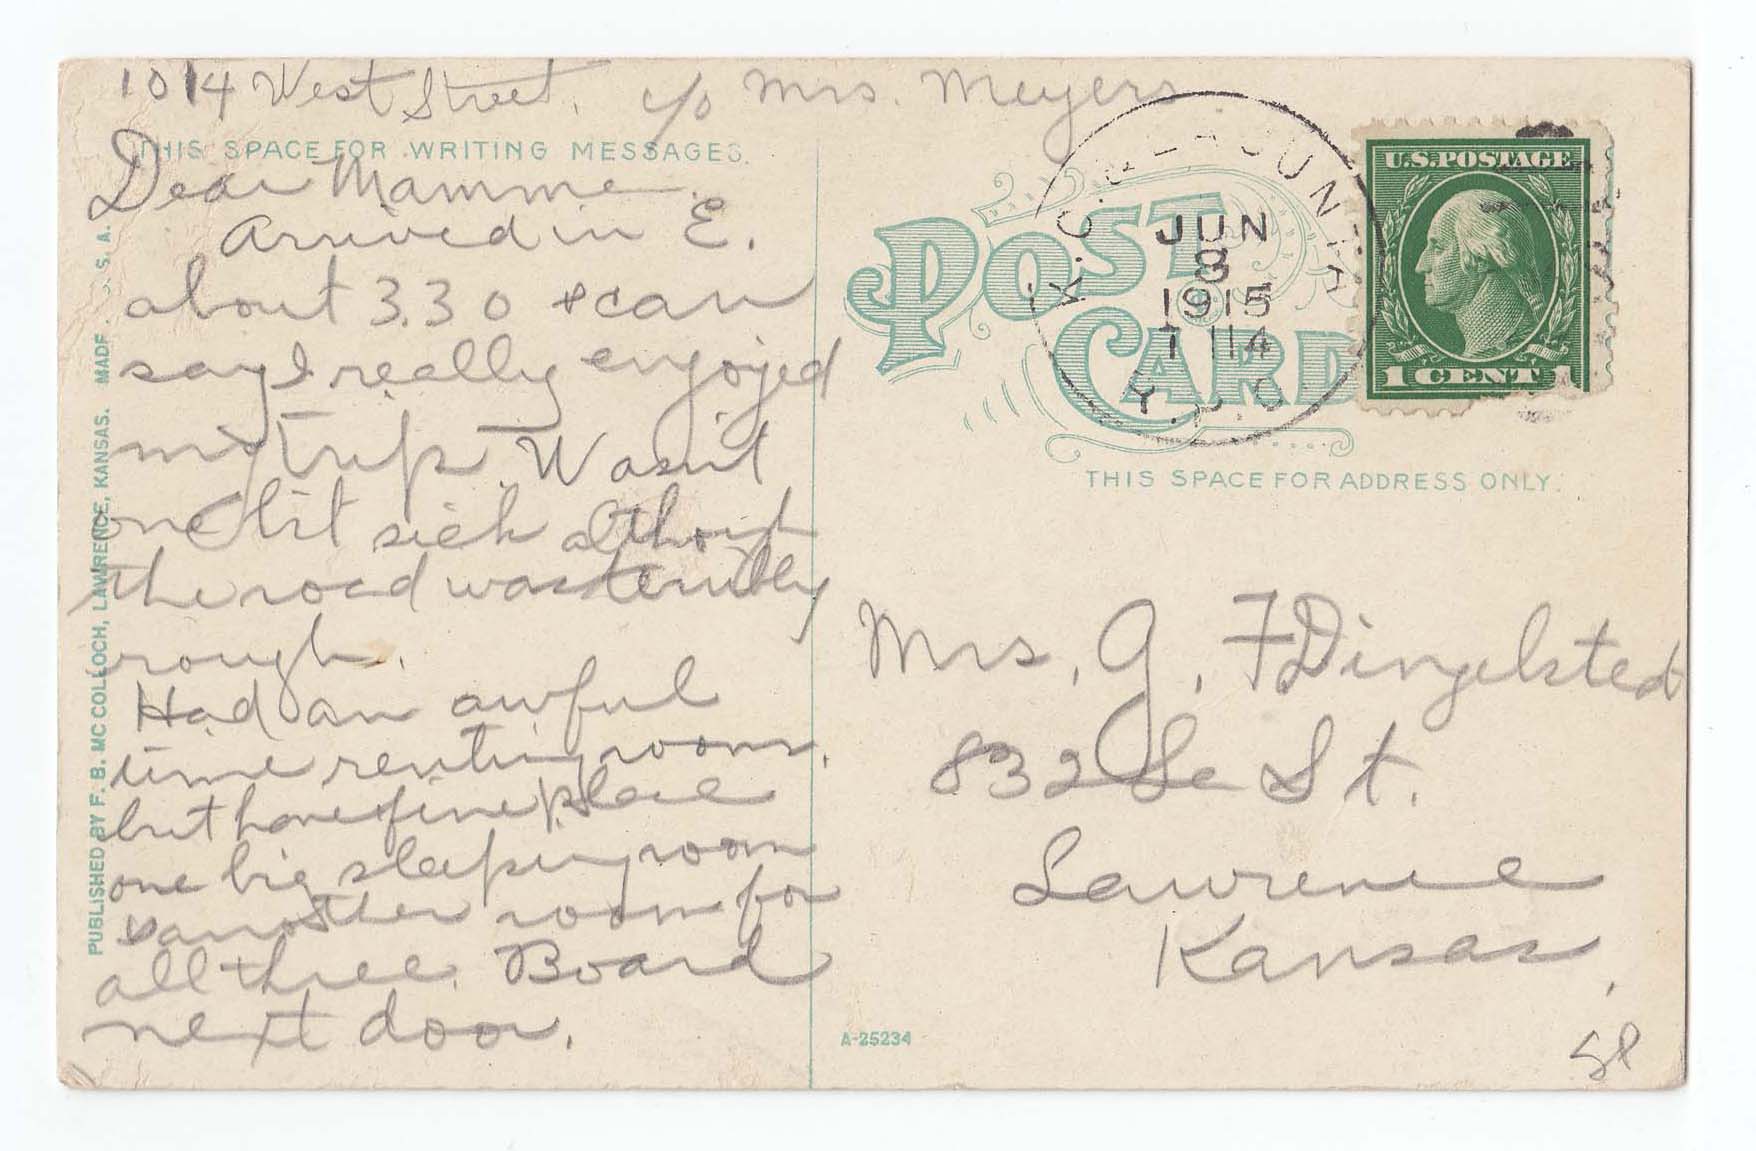 1014 West Street, c/o Mrs. Meyers.
THIS SPACE FOR WRITING MESSAGES.
Dear Mamma.
Arrived in E.
about 3.30 & can
say I really enjoyed
my trip. Wasn't
one bit sick although
the road was terribly
rough.
Had an awful
time renting room,
but have fine place
one big sleeping room
& another room for
all three. Board
next door.
PUBLISHED BY F. B. MC COLLOCH, LAWRENCE, KANSAS. MADE U. S. A.
POST
CARD
K.C. & LA JUNTA
JUN
8
1915
T 114
R.P.O.
U.S. POSTAGE
1 CENT 1
THIS SPACE FOR ADDRESS ONLY.
Mrs. G. F Dingelsted
832 La St.
Lawrence
Kansas,
A-25234